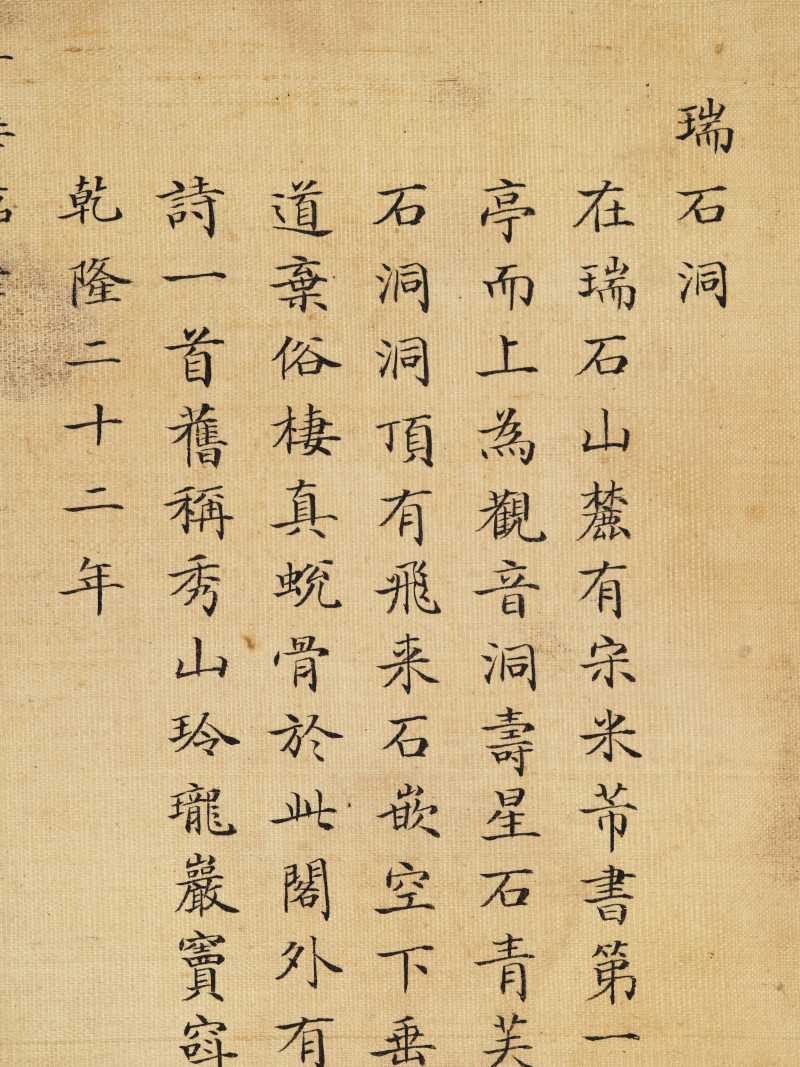 瑞石洞
在瑞石山麓有宋米芾書第一
亭而上為觀音洞壽星石青芙
石洞洞頂有飛来石嵌空下垂
道棄俗棲真蛻骨於此閣外有
詩一首舊稱秀山玲瓏巖竇窈
乾隆二十二年